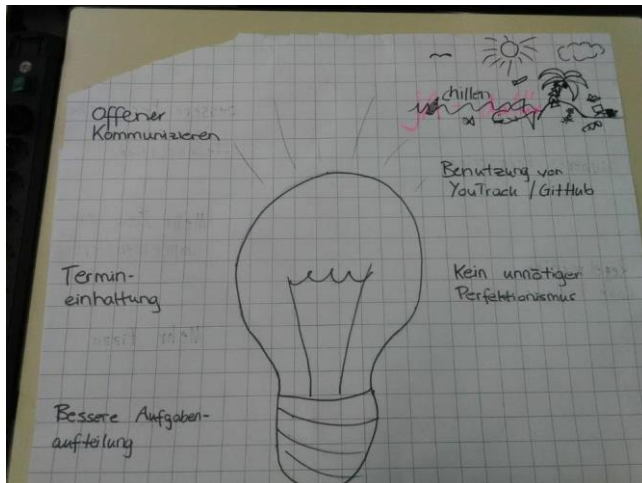 chillen
Offener
Kommunizieren
Benutzung von
YouTrack / GitHub
Termin-
einhaltung
Kein unnötiger
Perfektionismus
Bessere Aufgaben-
aufteilung